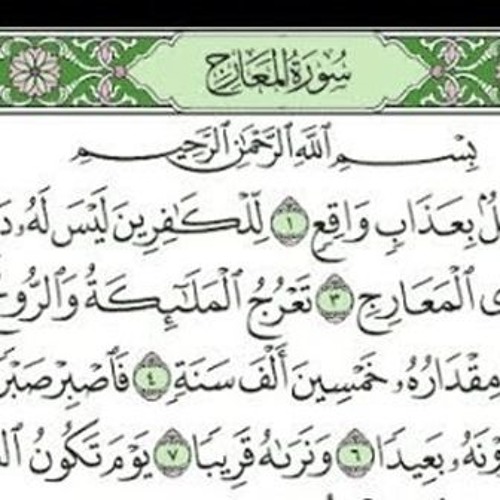 سُورَةُ المَعَارِجِ
بِسْمِ ٱللَّهِ ٱلرَّحْمَٰنِ ٱلرَّحِيمِ
بِعَذَابٍ وَاقِعٍ ١ لِّلْكَٰفِرِينَ لَيْسَ لَهُۥ
ٱلْمَعَارِجِ ٣ تَعْرُجُ ٱلْمَلَٰٓئِكَةُ وَٱلرُّوحُ
مِقْدَارُهُۥ خَمْسِينَ أَلْفَ سَنَةٍ ٤ فَٱصْبِرْ صَبْرًا
بَعِيدًا ٦ وَنَرَىٰهُ قَرِيبًا ٧ يَوْمَ تَكُونُ